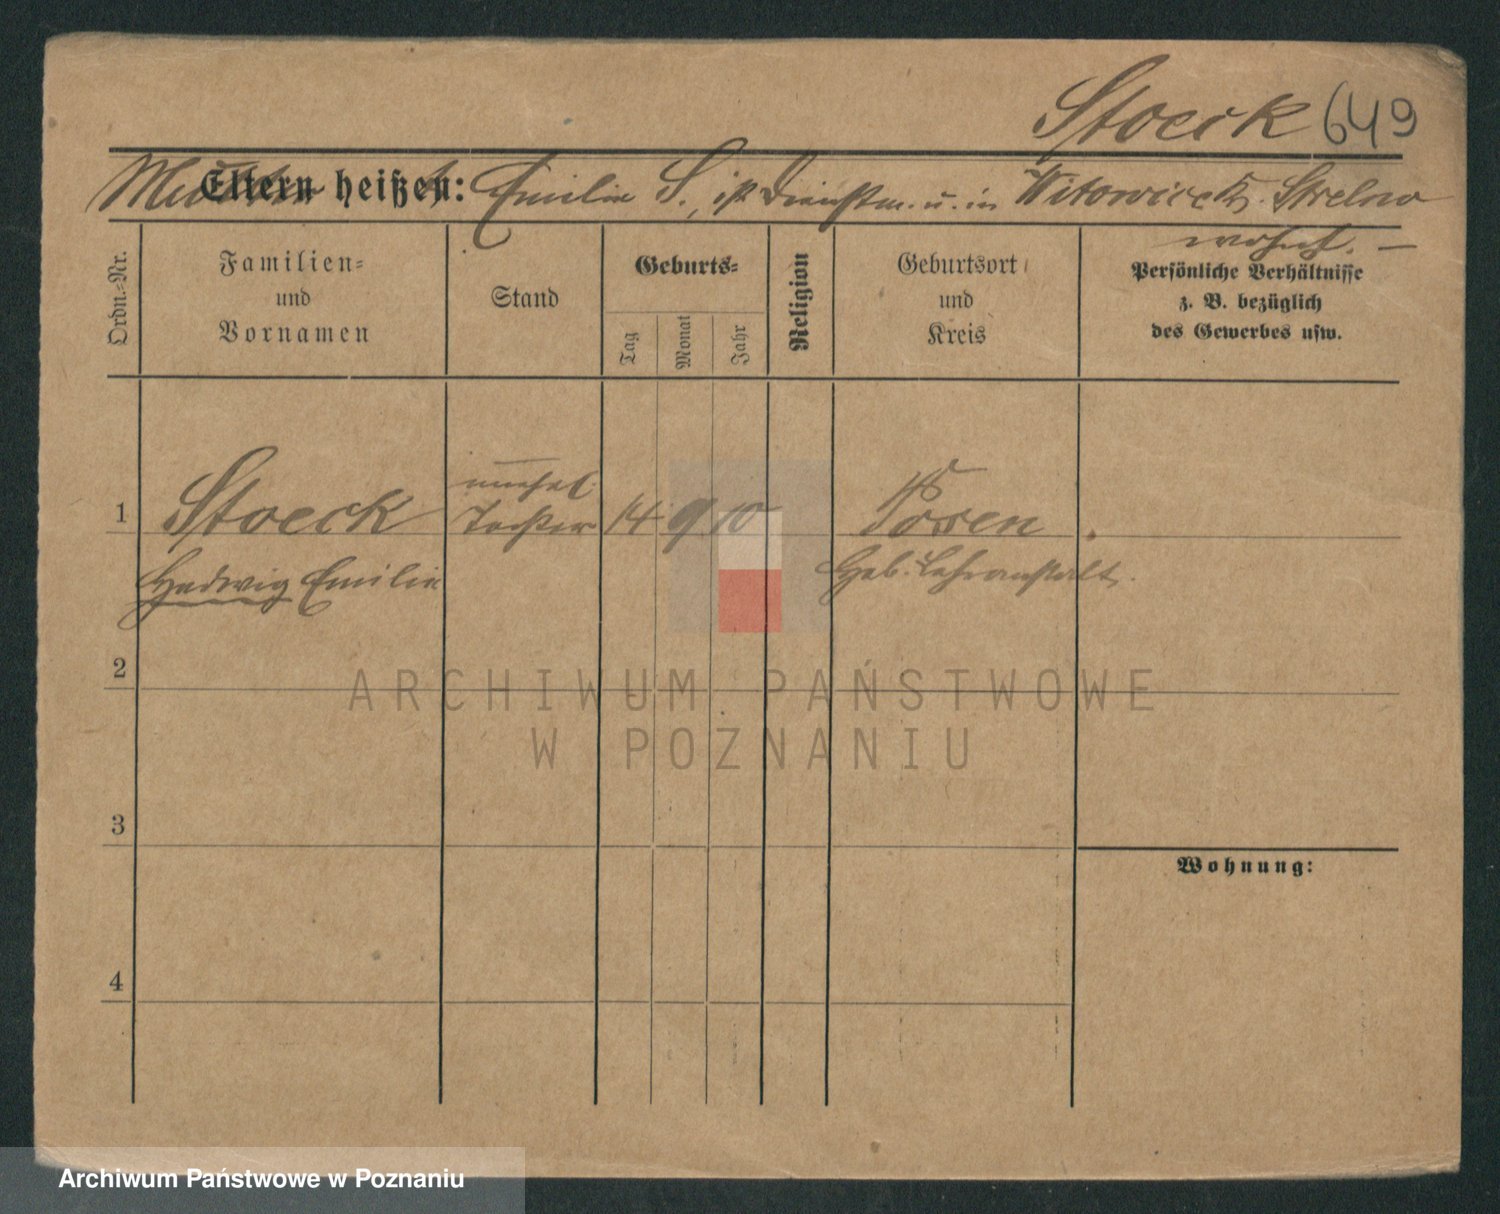 Stoeck 649
Mutter Eltern heißen: Emilie S., ist Dienstm. u. in Witowiczk. Strelno
wohnh. —
Ordn.-Nr.
Familien-
und
Vornamen
Stand
Geburts-
Tag
Monat
Jahr
Religion
Geburtsort
und
Kreis
Persönliche Verhältnisse
z. B. bezüglich
des Gewerbes usw.
1
Stoeck
Hedwig Emilie
unehel.
Tochter
14 9 10
Posen
Heb. Lehranstalt.
2
ARCHIWUM PAŃSTWOWE
W POZNANIU
3
Wohnung:
4
Archiwum Państwowe w Poznaniu